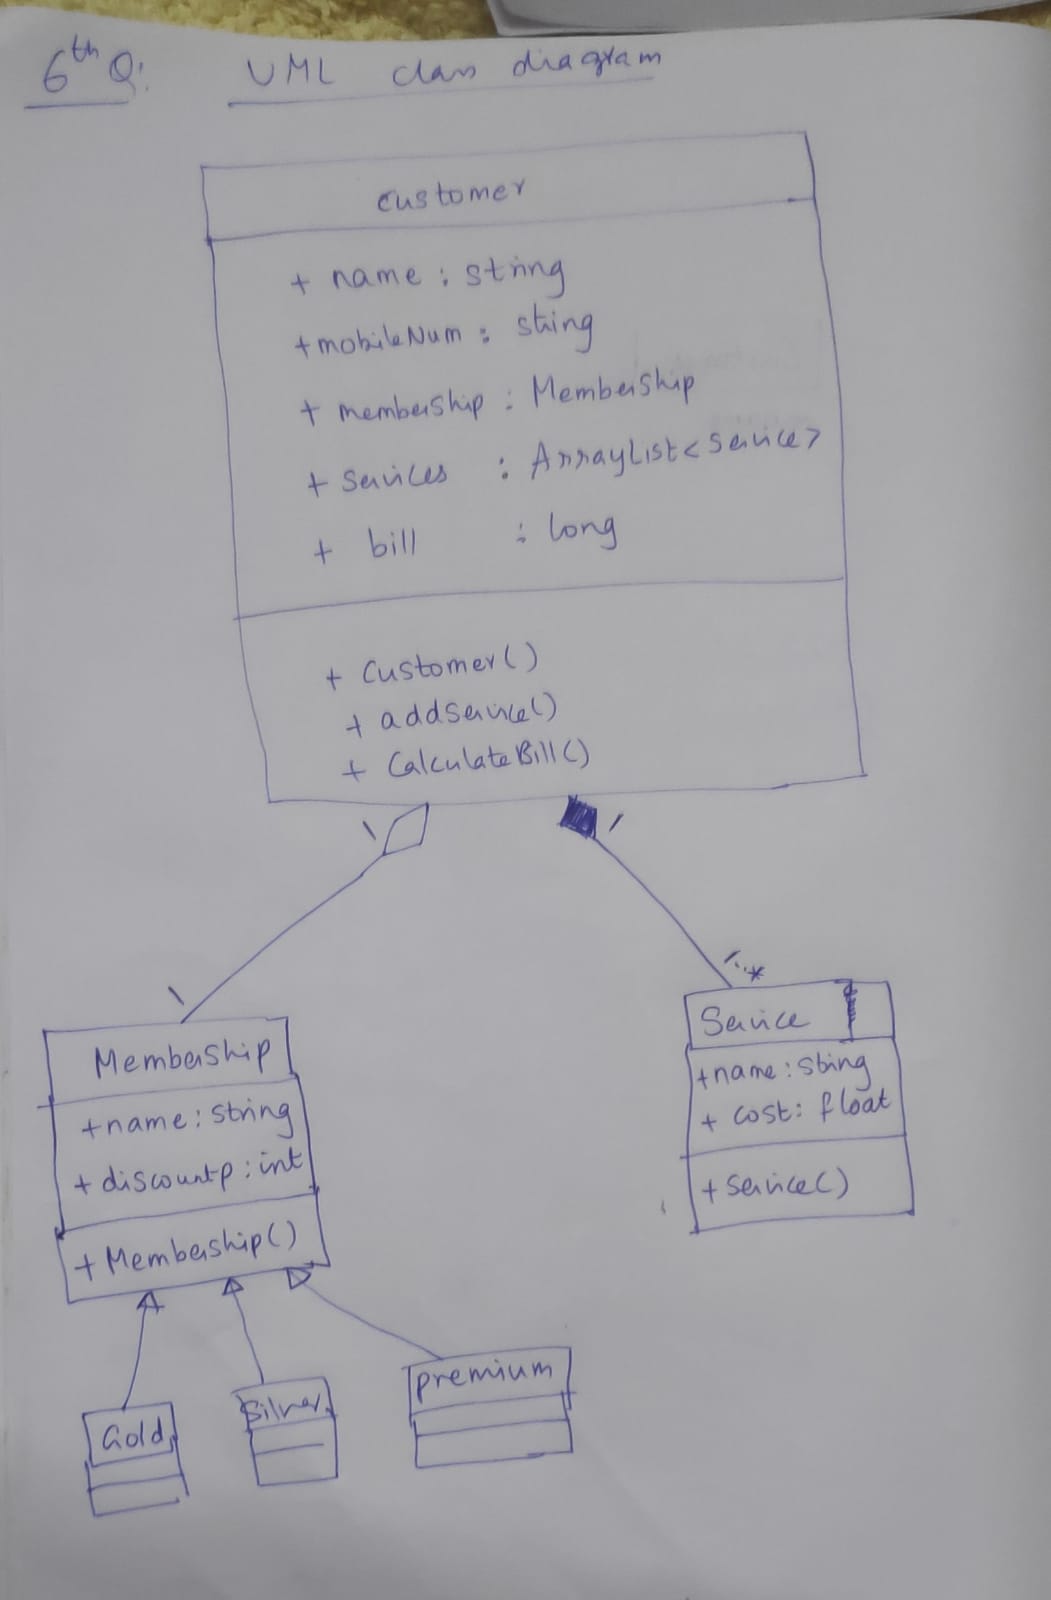 6th Q: UML class diagram
customer
+ name : string
+ mobileNum : string
+ membership : Membership
+ services : ArrayList<service>
+ bill : long
+ Customer()
+ addService()
+ CalculateBill()
1 1
1 1..*
Membership
+name : string
+ discountp : int
+ Membership()
Service
+name : string
+ cost : float
+ service()
Gold
Silver
premium